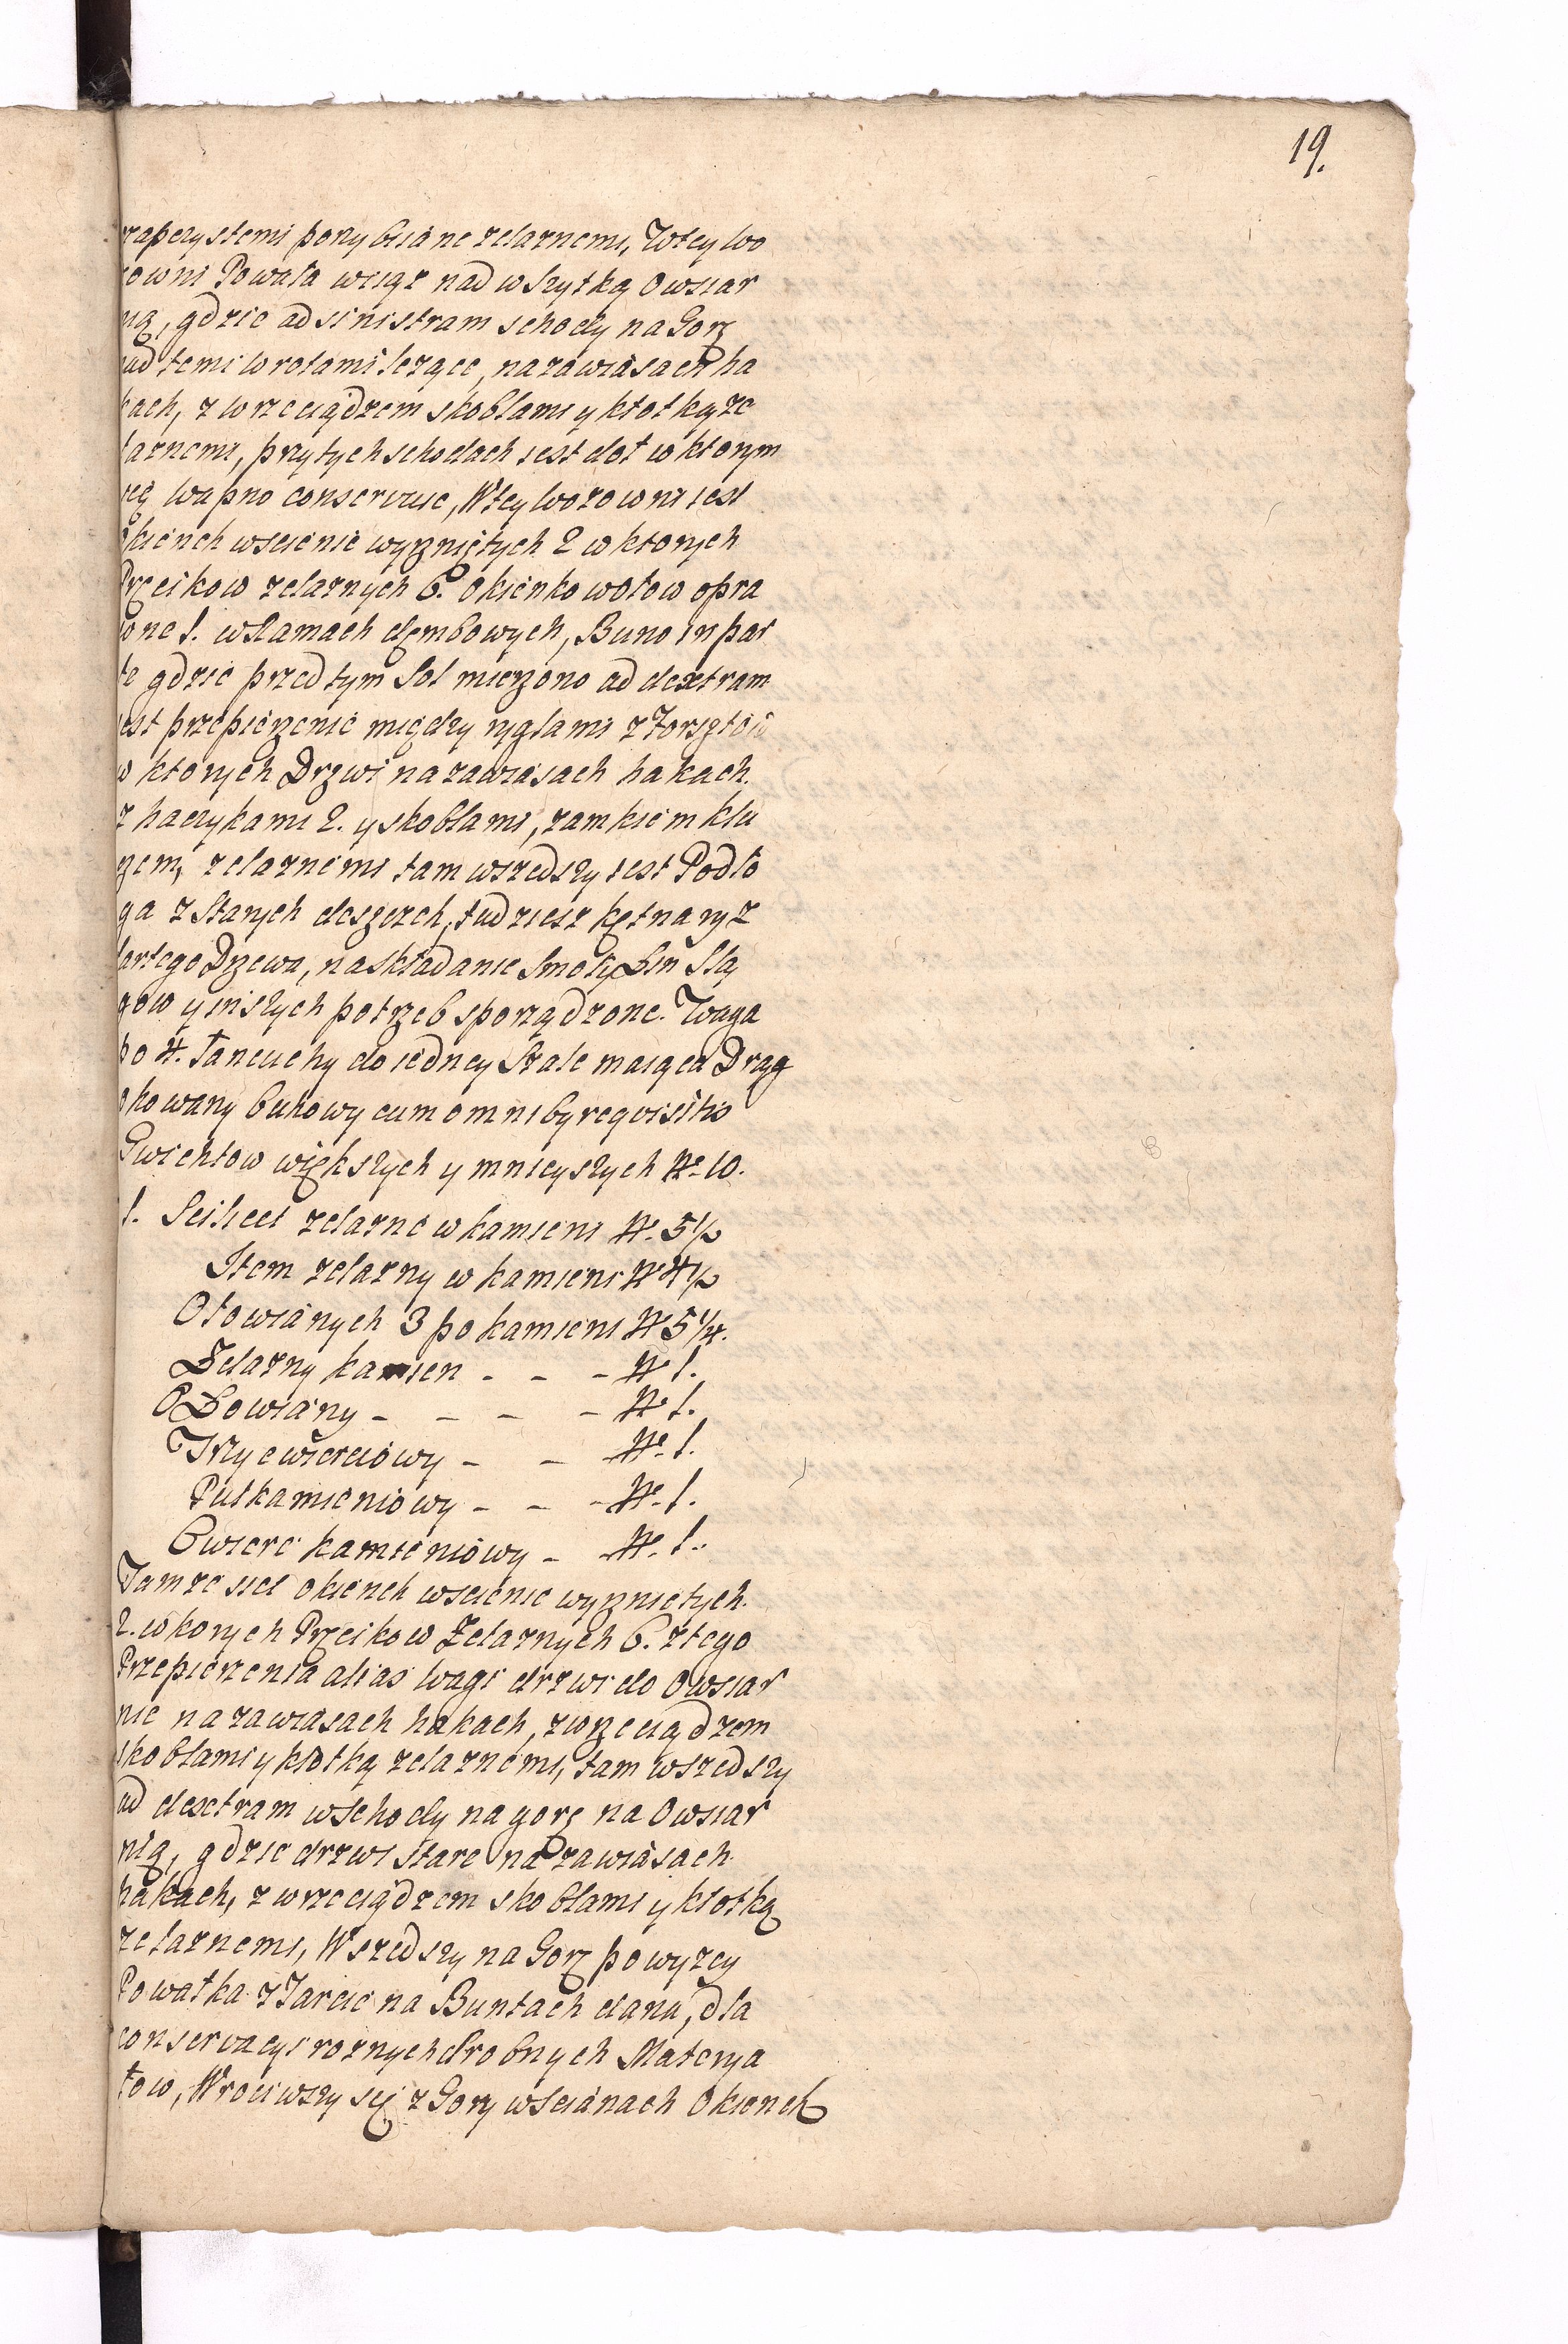 19.
zapczystemi pozybiiane zelaznemi, Wtey Wo
zowni Powała wciąż nad wszytką Owsiar
nią, gdzie ad sinistram schody na Gorę
nad temi wrotami lezące, na zawiasach ha
kach, z wrzeciądzem skoblami y kłotką że
laznemi, przy tych schodach iest doł w ktorym
się wapno conserwuie, Wtey Wozowni iest
okienek wscienie wyrzniętych 2 w ktorych
Pręcikow zelaznych 6. Okienko wołow opra
wne 1. w Ramach dembowych, Budo in par
te gdzie przed tym Sol mierzono ad dextram
iest przepierzenie między ryglami z Forsztow
w ktorych Drzwi na zawiasach hakach
z haczykami 2. y skoblami, zamkiem klu
czem, zelaznemi tam wszedszy iest Podło
ga z Starych deszczek, tudziesz kętnary z
tartego Drzewa, na składanie Smoły Lin Slą
gow y inszych potrzeb sporządzone. Waga
po 4. łancuchy do iedney Szale maiąca Drąg
okowany bukowy cum omniby requisitis
Gwichtow większych y mnieyszych N. 10.
1. Scilicet zelazne w kamieni N. 5 1/2
Item zelazny w kamieni N 4 1/2
Ołowianych 3 po kamieni N 5 1/4.
Zelazny kamien - - - N 1.
Ołowiany - - - - N 1.
Trzycwierciowy - - N. 1.
Pułkamieniowy - - - N. 1.
Cwierć kamieniowy - N. 1.
Tamze iest okienek wscienie wyrznietych
2. w korych Pręcikow Zelaznych 6. z tego
Przepierzenia alias Wagi drzwi do Owsiar
nie na zawiasach hakach, z wrzeciądzem
skoblami y kłotką zelaznemi, tam wszedszy
ad dextram wschody na gorę na Owsiar
nią, gdzie drzwi stare na zawiasach
hakach, z wrzeciądzem skoblami y kłotką
zelaznemi, Wszedszy na Gorę powyzey
Powałka z Tarcic na Buntach dana, dla
conserwacyi roznych drobnych Materya
łow, Wrociwszy się z Gory w Scianach Okienek